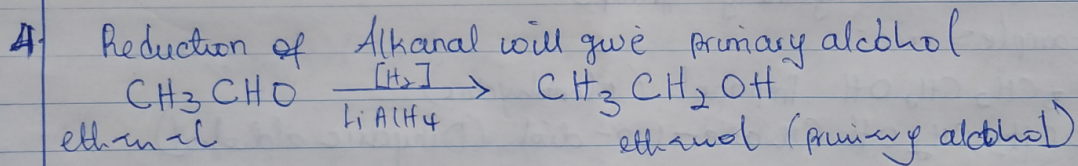 4. Reduction of Alkanal will give primary alcohol
[H₂]
CH₃ CHO ⟶ CH₃ CH₂ OH
LiAlH₄
ethanal ethanol (primary alcohol)